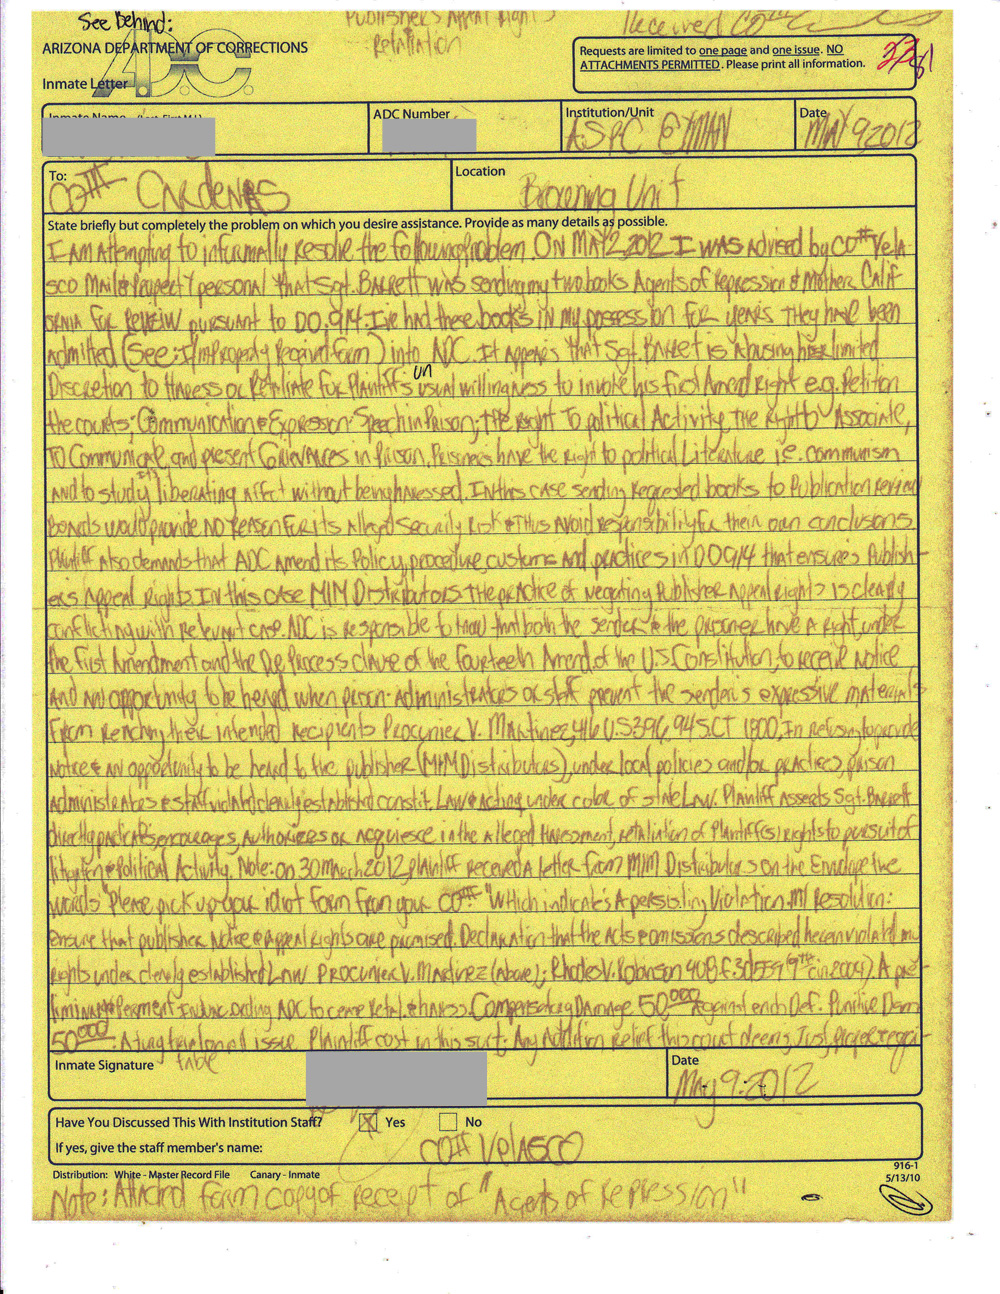 See Behind:
Publisher's Appeal Rights
Retaliation
Received CO
ARIZONA DEPARTMENT OF CORRECTIONS
ADC
Inmate Letter
Requests are limited to one page and one issue. NO
ATTACHMENTS PERMITTED. Please print all information.
Inmate Name (Last, First M.I.)
ADC Number
Institution/Unit
ASPC EYMAN
Date
MAY 9 2012
To:
CO III CARDENAS
Location
Browning Unit
State briefly but completely the problem on which you desire assistance. Provide as many details as possible.
I AM Attempting to informally Resolve the following problem. ON MAY 2 2012 I WAS Advised by CO II Vela
sco Mail & Property personal that Sgt. BARRETT WAS sending my two books Agents of Repression & Mother CALIF
ORNIA for REVIEW pursuant to D.O. 914. I've had these books in my possession for years They have been
admitted (See: I/m Property Received form) into ADC. It Appears that Sgt. BARRET is Abusing his limited
Discretion to Haress or Retaliate for Plaintiff's un usual willingness to invoke his first Amend Right e.g. Petition
the courts; Communication & Expression-Speech in Prison; the Right To political Activity, The Right to Associate,
TO Communicate, and present Grievances in Prison. Prisoners have the right to political Literature i.e. communism
AND to study it's liberating affect without being haressed. In this case sending Requested books to Publication Review
Boards would provide NO REASON for its Alleged security Risk & Thus Avoid responsibility for their own conclusions.
Plaintiff Also demands that ADC Amend its Policy, procedure, customs AND practices in D.O 914 that ensures Publish-
ers Appeal Rights. In this case MIM Distributors. The practice of negating Publisher Appeal Rights is clearly
conflicting with Relevant case. ADC is Responsible to know that both the sender & the prisoner have A Right, under
the first Amendment and the Due Process clause of the fourteeth Amend. of the U.S. Constitution, to receive Notice
AND AN opportunity to be heard when prison-administrators or staff prevent the sender's expressive materials
From Reaching their intended Recipients Procunier V. Martinez, 416 U.S 396, 94 S.CT 1800, In refusing to provide
Notice & AN opportunity to be heard to the publisher (MIM Distributors), under local policies and/or practices, prison
Administrators & staff violated clearly established constit. LAW & Acting under color of state LAW. Plaintiff Asserts Sgt. BARRETT
directly encourages, Authorizes or Acquiesce in the Alleged Harassment, retaliation of Plaintiff(s) Rights to pursuit of
litigation & Political Activity. Note: on 30 March 2012 plaintiff received A letter from MIM Distributors on the Envelope the
words "Please pick up your idiot form from your CO III" Which indicates A persisting Violation. My Resolution:
ensure that publisher Notice & Appeal Rights are promised. Declaration that the Acts & omissions described herein violated my
rights under clearly established LAW PROCUNIER V. Martinez (above); Rhodes V. Robinson 408 f.3d 559 (9th cir 2004). A pre-
liminary & Perment Injunc. ording ADC to cease Retal. & harass. Compensatory Damage 50,000 Against each Def. Punitive Dam
50,000: A jury trial on all issue Plaintiff cost in this suit; Any Addition Relief this court deems Just, proper & equi-
table
Inmate Signature
Date
May 9-2012
Have You Discussed This With Institution Staff?
Yes
No
If yes, give the staff member's name:
CO II VELASCO
Distribution: White - Master Record File Canary - Inmate
916-1
5/13/10
Note: Attached form copy of receipt of "Agents of Repression"